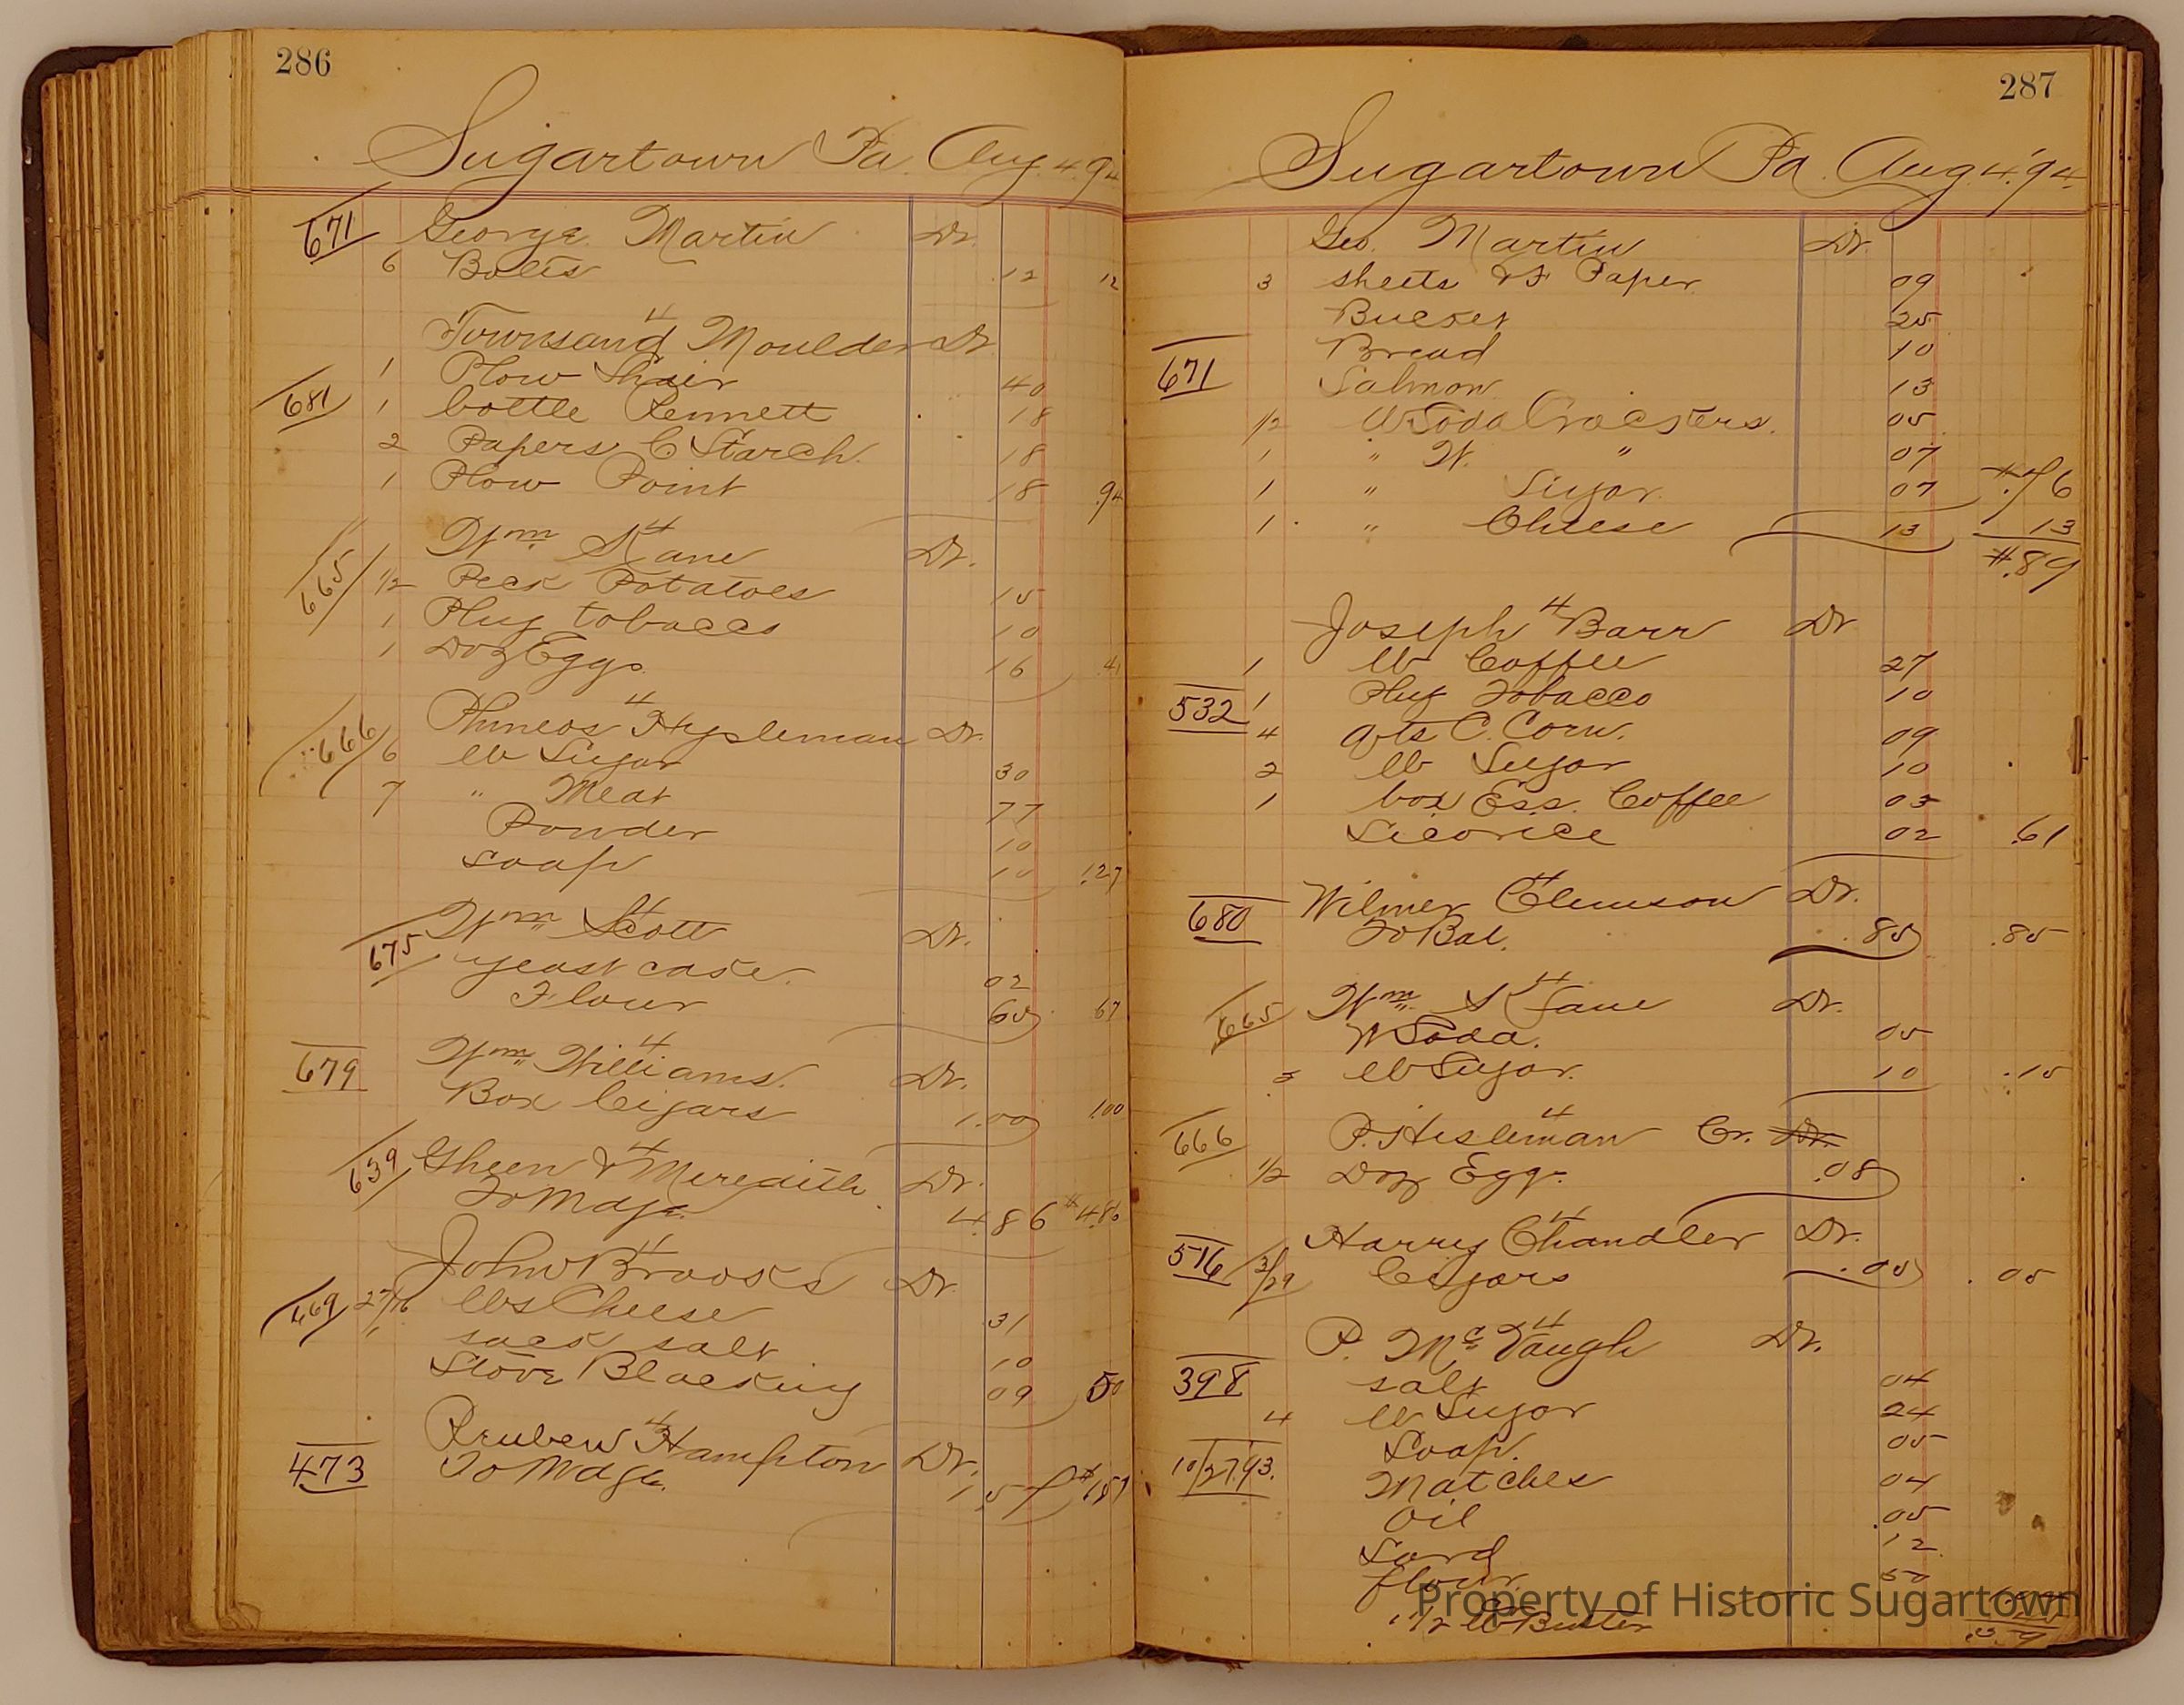 286
Sugartown Pa. Aug. 4. 94
671 George Martin Dr.
6 Bolts .12 12
4
Townsand Moulder Dr
1 Plow Shair 40
681 1 bottle Rennett 18
2 Papers C Starch. 18
1 Plow Point 18 .94
4
Wm Kane Dr.
665 1/2 Peck Potatoes 15
1 Plug tobacco 10
1 Doz Eggs 16 41
4
Phineos Hypleman Dr.
666 6 lb Sugar 30
7 " Meat 77
Powder 10
Soap 10 1.27
4
Wm Scott Dr.
675 yeast cake. 02
Flour 65 67
4
679 Wm Williams. Dr.
Box Cigars 1.00 1.00
4
639 Gheen & Meredith Dr.
To Mdse. 4.86 #4.86
4
John Brooks Dr.
669 lbs Cheese 31
1 sack salt 10
Stove Blacking 09 50
4
Reuben Hampton Dr.
473 To Mdse.
287
Sugartown Pa. Aug. 4. '94.
Geo. Martin Dr.
3 sheets Paper 09
Bucket 25
Bread 10
671 Salmon 13
1/2 lb Soda Crackers. 05
1 " W. " 07
1 " Sugar 07 #.76
1 " Cheese 13 13
#.89
4
Joseph Barr Dr
1 lb Coffee 27
532 1 Plug Tobacco 10
4 qts C. Corn. 09
2 lb Sugar 10
1 box Ess. Coffee 03
Licorice 02 .61
4
680 Wilmer Clemson Dr.
To Bal. .85 .85
4
665 Wm Kane Dr.
W Soda. 05
lb Sugar. 10 .15
4
666 P. Hesleman Cr. Dr.
1/2 Doz Eggs. .08
4
516 Harry Chandler Dr.
3/29 Cigars .05 .05
4
P. Mc Vaugh Dr.
398 salt 04
4 lb Sugar 24
Soap. 05
10/27.93. Matches 04
Oil .05
Lard 12
flour. 50
1 1/2 lb Butter
Property of Historic Sugartown